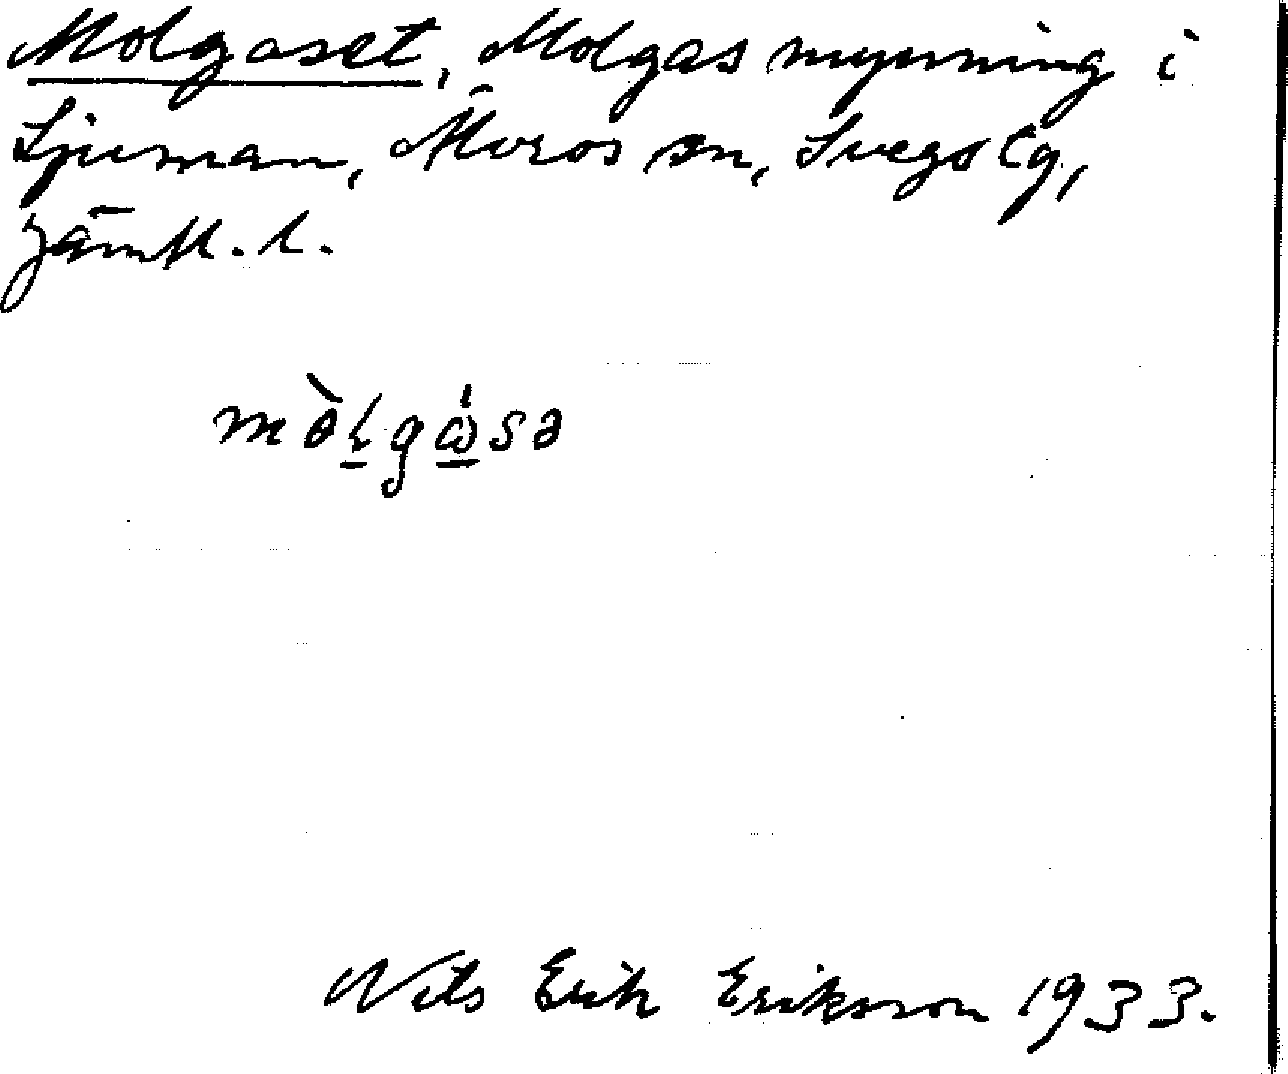 Molgaset, Molgas mynning i
Ljusnan, Älvros sn, Svegs tg,
Jämtl. l.
mòlgåsə
Nils Erik Eriksson 1933.